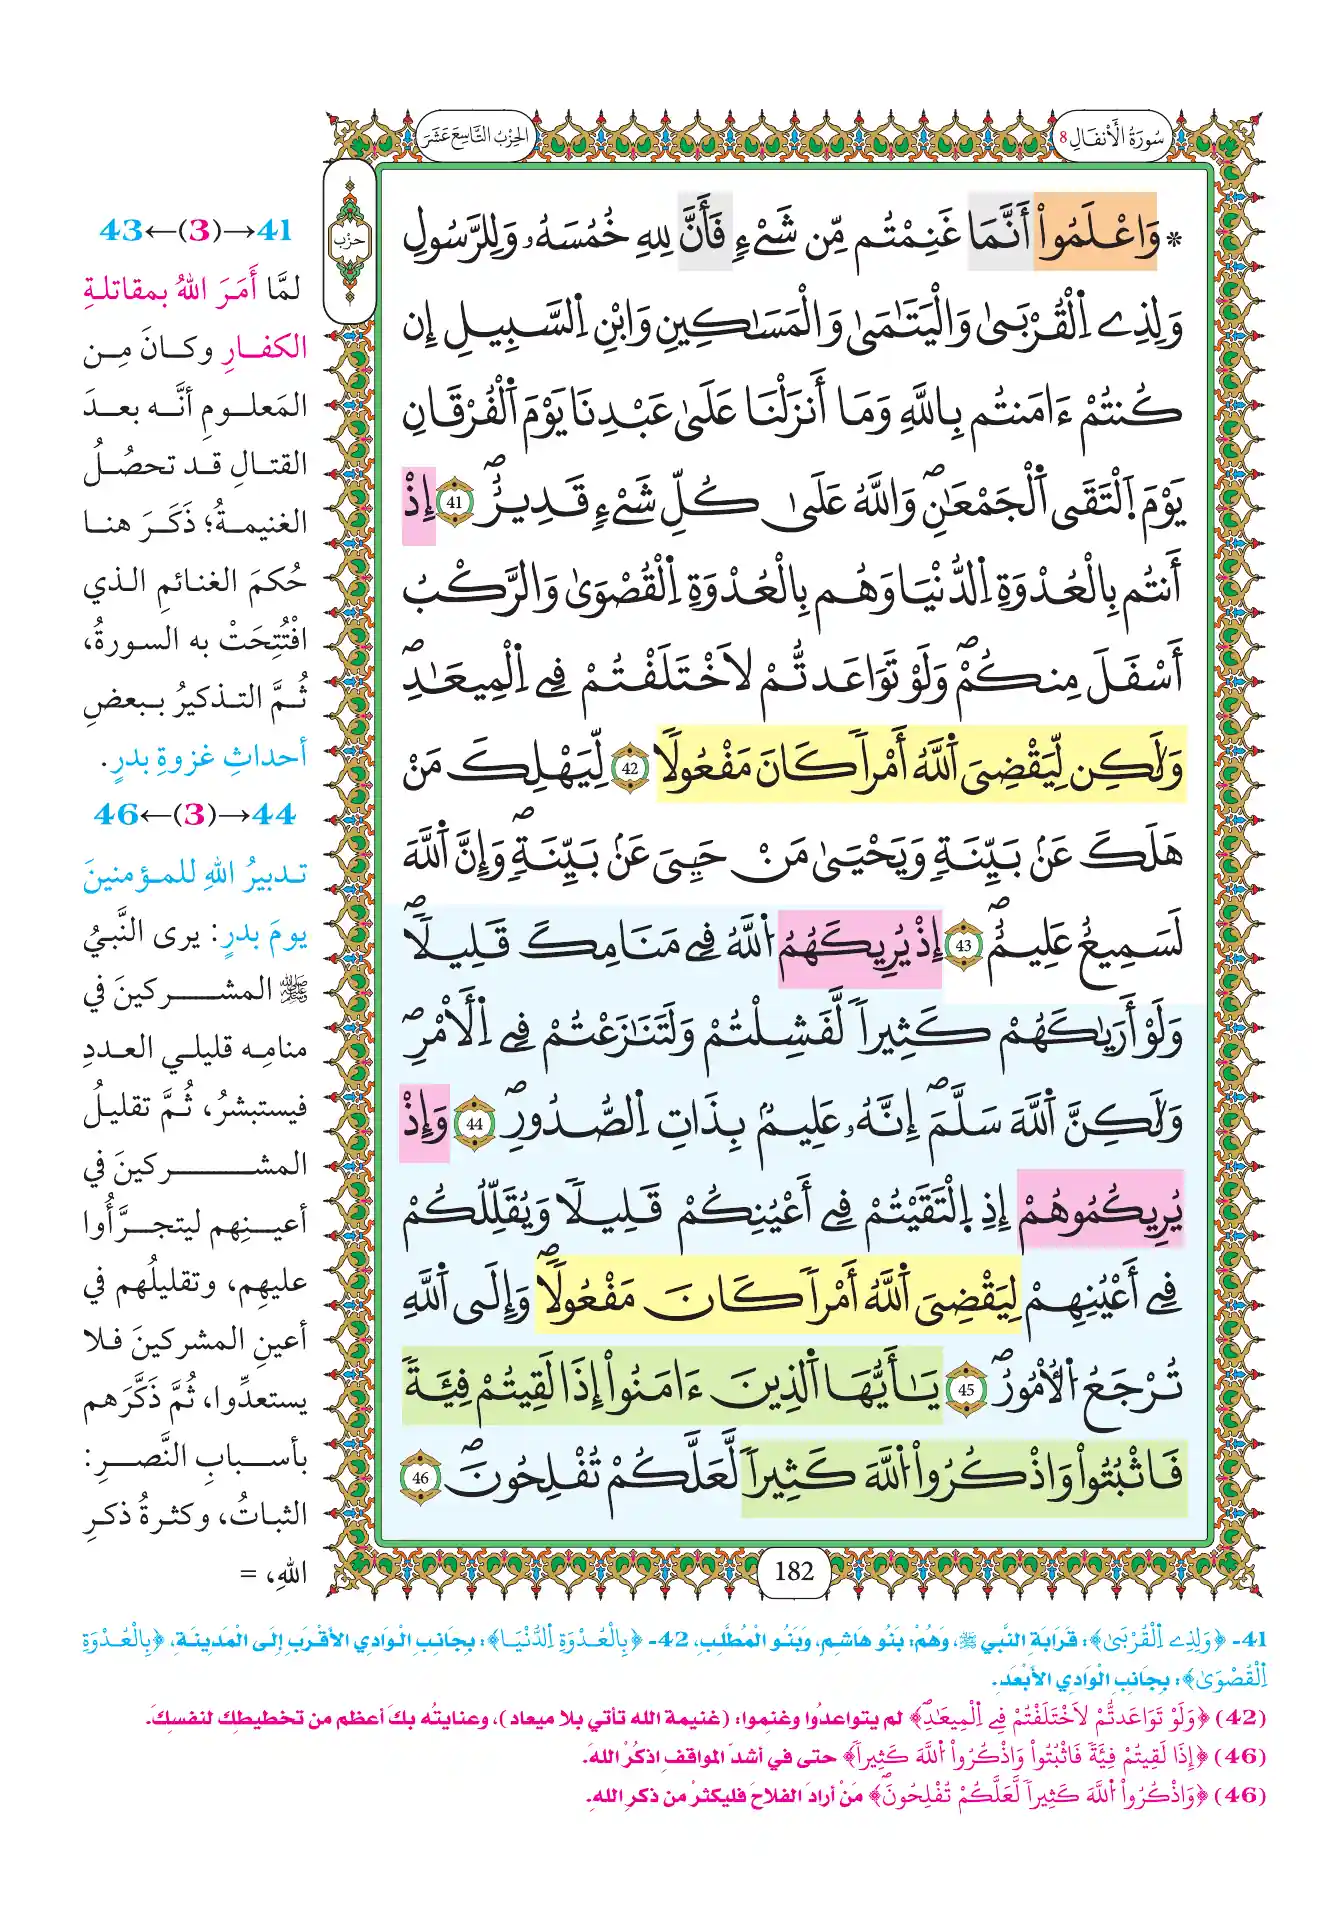 سُورَةُ الأَنفَالِ 8
الحِزْبُ التَّاسِعَ عَشَرَ
حِزْب
* وَاعْلَمُواْ أَنَّمَا غَنِمْتُم مِّن شَيْءٍ فَأَنَّ لِلهِ خُمُسَهُۥ وَلِلرَّسُولِ
وَلِذِے اِلْقُرْبَىٰ وَالْيَتَٰمَىٰ وَالْمَسَٰكِينِ وَابْنِ اِلسَّبِيلِ إِن
كُنتُمْ ءَامَنتُم بِاللَّهِ وَمَا أَنزَلْنَا عَلَىٰ عَبْدِنَا يَوْمَ اَلْفُرْقَانِ
يَوْمَ اَلْتَقَى اَلْجَمْعَٰنِۖ وَاللَّهُ عَلَىٰ كُلِّ شَيْءٍ قَدِيرٌۖ 41 إِذْ
أَنتُم بِالْعُدْوَةِ اِلدُّنْيَا وَهُم بِالْعُدْوَةِ اِلْقُصْوَىٰ وَالرَّكْبُ
أَسْفَلَ مِنكُمْۖ وَلَوْ تَوَاعَدتُّمْ لَاخْتَلَفْتُمْ فِے اِلْمِيعَٰدِۖ
وَلَٰكِن لِّيَقْضِيَ اَللَّهُ أَمْراٗ كَانَ مَفْعُولاٗ 42 لِّيَهْلِكَ مَنْ
هَلَكَ عَنۢ بَيِّنَةٖ وَيَحْيَىٰ مَنْ حَيِيَ عَنۢ بَيِّنَةٖۖ وَإِنَّ اَللَّهَ
لَسَمِيعٌ عَلِيمٌۖ 43 إِذْ يُرِيكَهُمُ اُللَّهُ فِے مَنَامِكَ قَلِيلاٗۖ
وَلَوْ أَرَيٰكَهُمْ كَثِيراٗ لَّفَشِلْتُمْ وَلَتَنَٰزَعْتُمْ فِے اِلَامْرِۖ
وَلَٰكِنَّ اَللَّهَ سَلَّمَۖ إِنَّهُۥ عَلِيمٌۢ بِذَاتِ اِلصُّدُورِۖ 44 وَإِذْ
يُرِيكُمُوهُمْ إِذِ اِلْتَقَيْتُمْ فِے أَعْيُنِكُمْ قَلِيلاٗ وَيُقَلِّلُكُمْ
فِے أَعْيُنِهِمْ لِيَقْضِيَ اَللَّهُ أَمْراٗ كَانَ مَفْعُولاٗۖ وَإِلَى اَللَّهِ
تُرْجَعُ اُلُامُورُۖ 45 يَٰأَيُّهَا اَلذِينَ ءَامَنُواْ إِذَا لَقِيتُمْ فِئَةٗ
فَاثْبُتُواْ وَاذْكُرُواْ اُللَّهَ كَثِيراٗ لَّعَلَّكُمْ تُفْلِحُونَۖ 46
182
41→(3)←43
لمَّا أَمَرَ اللهُ بمقاتلةِ
الكفارِ وكانَ مِن
المَعلومِ أنَّه بعدَ
القتالِ قد تحصُلُ
الغنيمةُ؛ ذَكَرَ هنا
حُكمَ الغنائمِ الذي
افْتُتِحَتْ به السورةُ،
ثُمَّ التذكيرُ ببعضِ
أحداثِ غزوةِ بدرٍ.
44→(3)←46
تدبيرُ اللهِ للمؤمنينَ
يومَ بدرٍ: يرى النَّبيُ
ﷺ المشركينَ في
منامِه قليلي العددِ
فيستبشرُ، ثُمَّ تقليلُ
المشركينَ في
أعينِهم ليتجرَّأُوا
عليهِم، وتقليلُهم في
أعينِ المشركينَ فلا
يستعدِّوا، ثُمَّ ذَكَّرَهم
بأسبابِ النَّصرِ:
الثباتُ، وكثرةُ ذكرِ
اللهِ، =
41- ﴿وَلِذِے اِلْقُرْبَىٰ﴾: قَرَابَةِ النَّبي ﷺ، وَهُمْ: بَنُو هَاشِمٍ، وَبَنُو الْمُطَّلِبِ، 42- ﴿بِالْعُدْوَةِ اِلدُّنْيَا﴾: بِجَانِبِ الْوَادِي الأَقْرَبِ إِلَى الْمَدِينَةِ، ﴿بِالْعُدْوَةِ
اِلْقُصْوَىٰ﴾: بِجَانِبِ الْوَادِي الأَبْعَدِ.
(42) ﴿وَلَوْ تَوَاعَدتُّمْ لَاخْتَلَفْتُمْ فِے اِلْمِيعَٰدِۖ﴾ لم يتواعدُوا وغنِموا: (غنيمة الله تأتي بلا ميعاد)، وعنايتُه بكَ أعظم من تخطيطِك لنفسِكَ.
(46) ﴿إِذَا لَقِيتُمْ فِئَةٗ فَاثْبُتُواْ وَاذْكُرُواْ اُللَّهَ كَثِيراٗ﴾ حتى في أشدّ المواقفِ اذكُرْ اللهَ.
(46) ﴿وَاذْكُرُواْ اُللَّهَ كَثِيراٗ لَّعَلَّكُمْ تُفْلِحُونَۖ﴾ مَنْ أرادَ الفلاحَ فليكثرْ من ذكرِ اللهِ.